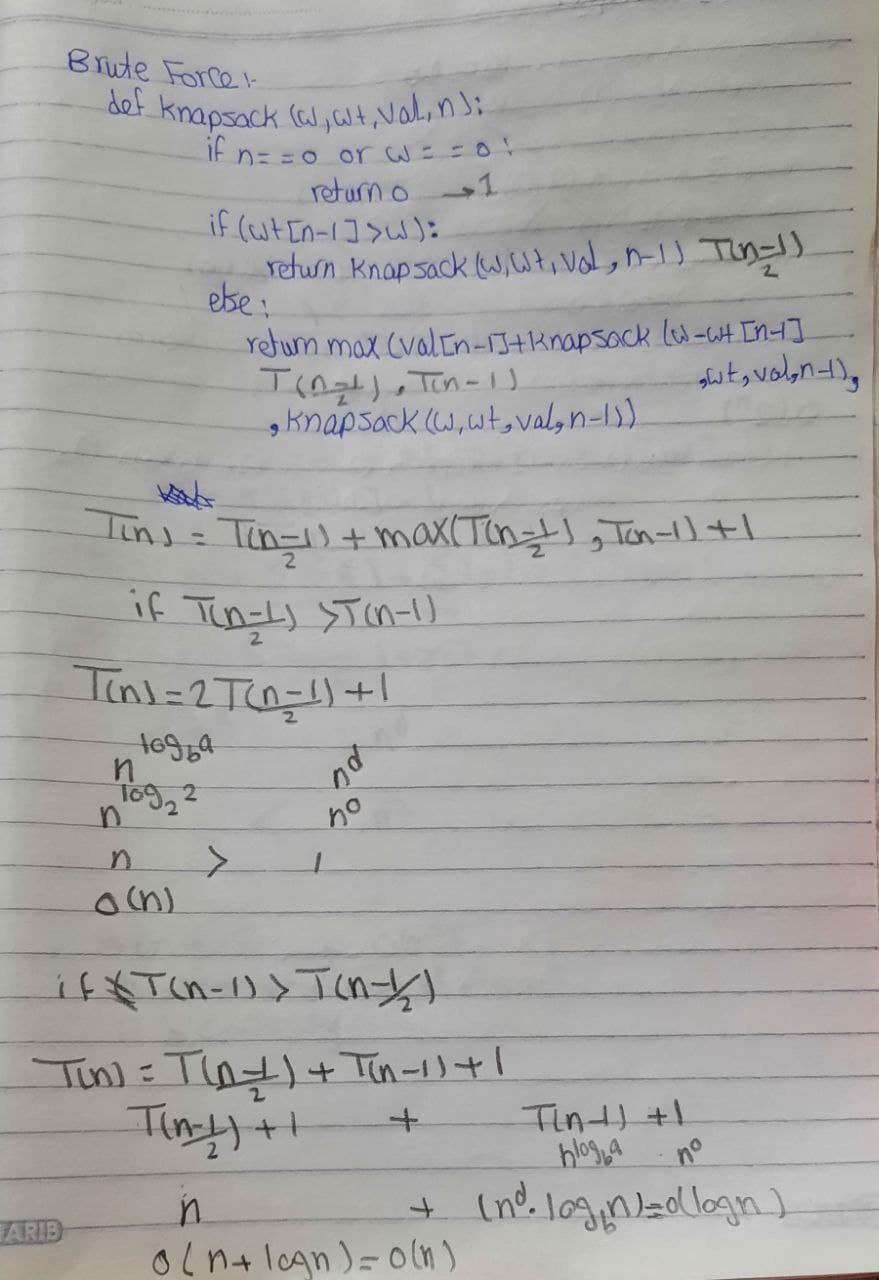 Brute Force:-
def Knapsack (W,wt,Val,n):
if n==0 or w==0:
return 0 →1
if (wt[n-1]>W):
return Knapsack (W,wt,Val,n-1) T(n-1)/2
else:
return max (val[n-1]+Knapsack (W-wt[n-1]
T(n-1)/2, T(n-1) ,wt,val,n-1),
,Knapsack(W,wt,val,n-1))
T(n) = T(n-1)/2 + max(T(n-1)/2, T(n-1)+1
if T(n-1)/2 >T(n-1)
T(n)=2T(n-1)/2+1
n^log_b a n^d
n^log_2 2 n^0
n > 1
O(n)
if T(n-1)> T(n-1/2)
T(n) = T(n-1)/2 + T(n-1)+1
T(n-1)/2+1 + T(n-1)+1
n^log_b a . n^0
n + (n^d. log_b n)=O(logn)
ARIB
O(n+logn)=O(n)